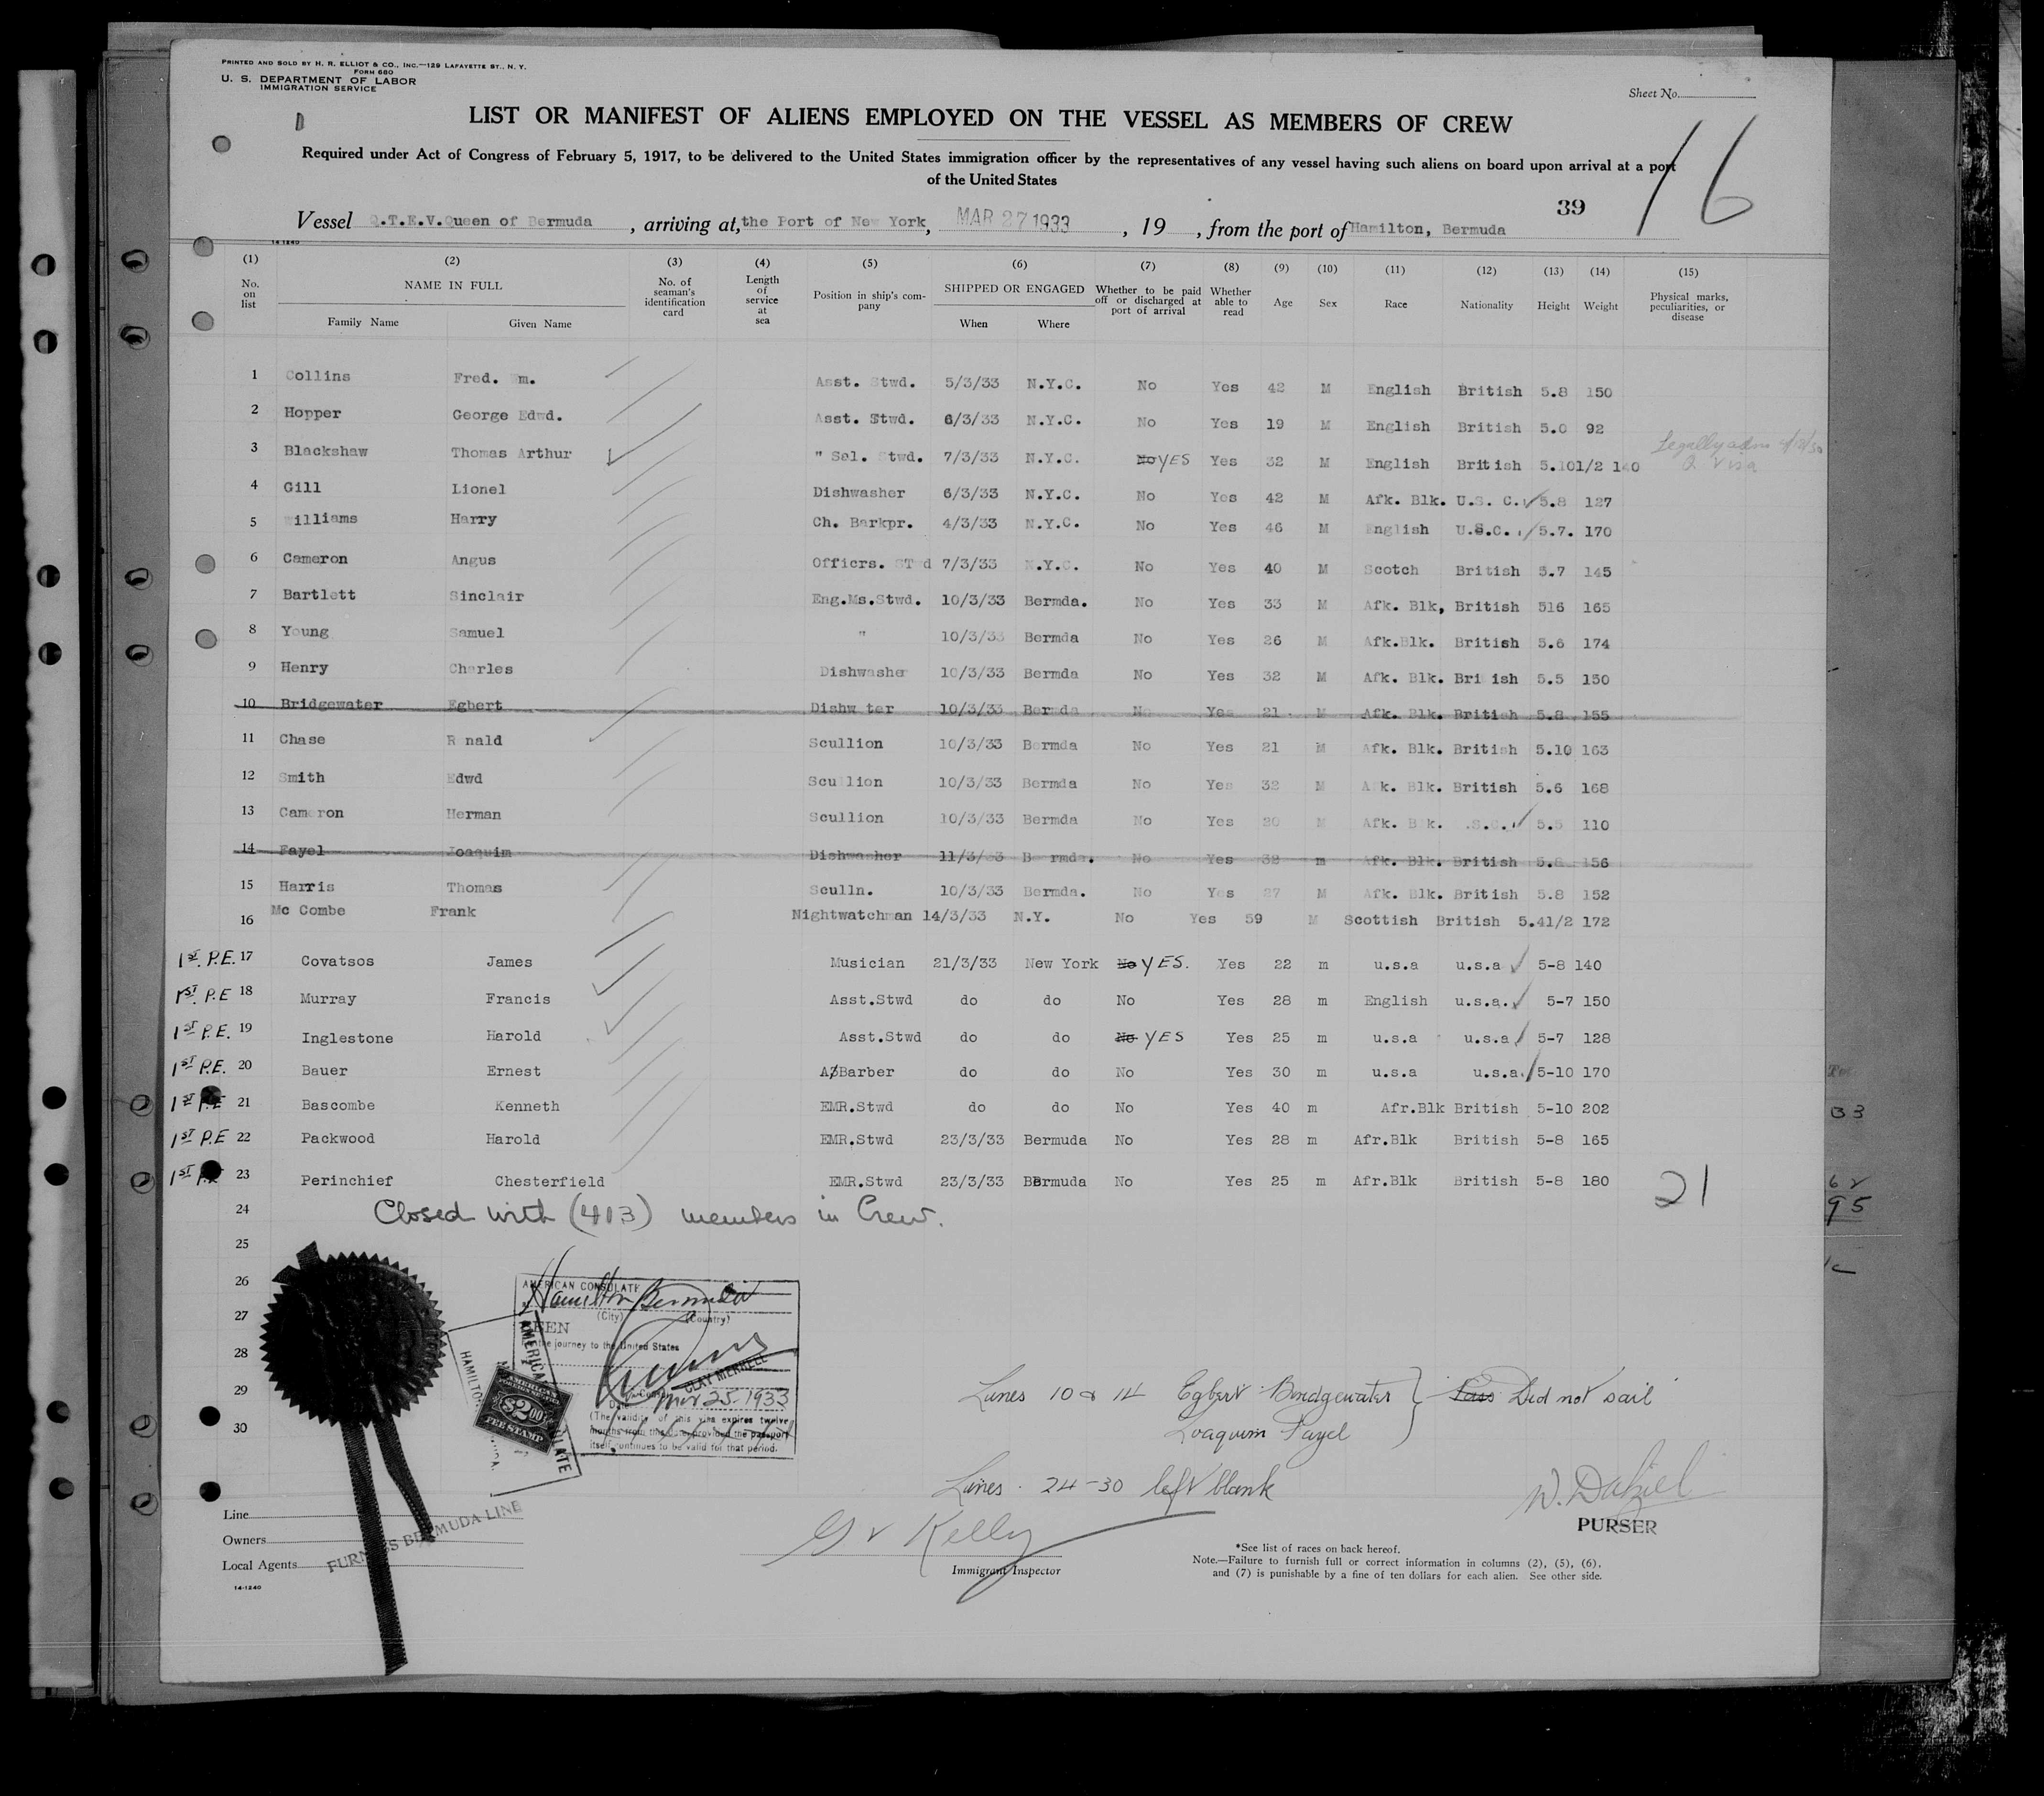 PRINTED AND SOLD BY H. R. ELLIOT & CO., INC.—129 LAFAYETTE ST., N. Y.
FORM 680
U. S. DEPARTMENT OF LABOR
IMMIGRATION SERVICE
Sheet No.
LIST OR MANIFEST OF ALIENS EMPLOYED ON THE VESSEL AS MEMBERS OF CREW
16
Required under Act of Congress of February 5, 1917, to be delivered to the United States immigration officer by the representatives of any vessel having such aliens on board upon arrival at a port
of the United States
39
Vessel Q.T.E.V.Queen of Bermuda, arriving at, the Port of New York, MAR 27 1933, 19 , from the port of Hamilton, Bermuda
14-1240
(1) (2) (3) (4) (5) (6) (7) (8) (9) (10) (11) (12) (13) (14) (15)
No. on list NAME IN FULL Family Name Given Name No. of seaman's identification card Length of service at sea Position in ship's company SHIPPED OR ENGAGED When Where Whether to be paid off or discharged at port of arrival Whether able to read Age Sex Race Nationality Height Weight Physical marks, peculiarities, or disease
1 Collins Fred. Wm. Asst. Stwd. 5/3/33 N.Y.C. No Yes 42 M English British 5.8 150
2 Hopper George Edwd. Asst. Stwd. 6/3/33 N.Y.C. No Yes 19 M English British 5.0 92
3 Blackshaw Thomas Arthur " Sal. Stwd. 7/3/33 N.Y.C. No YES Yes 32 M English British 5.101/2 140 Legally adm
4 Gill Lionel Dishwasher 6/3/33 N.Y.C. No Yes 42 M Afk. Blk. U.S. C. 5.8 127
5 illiams Harry Ch. Barkpr. 4/3/33 N.Y.C. No Yes 46 M English U.S.C. 5.7. 170
6 Cameron Angus Officrs. STwd 7/3/33 N.Y.C. No Yes 40 M Scotch British 5.7 145
7 Bartlett Sinclair Eng.Ms.Stwd. 10/3/33 Bermda. No Yes 33 M Afk. Blk, British 516 165
8 Young Samuel " 10/3/33 Bermda No Yes 26 M Afk.Blk. British 5.6 174
9 Henry Charles Dishwashe 10/3/33 Bermda No Yes 32 M Afk. Blk. Bri ish 5.5 130
10 Bridgewater Egbert Dishw ter 10/3/33 Bermda No Yes 21 M Afk. Blk. British 5.8 155
11 Chase R nald Scullion 10/3/33 Bermda No Yes 21 M Afk. Blk. British 5.10 163
12 Smith Edwd Scullion 10/3/33 Bermda No Yes 32 M Afk. Blk. British 5.6 168
13 Cameron Herman Scullion 10/3/33 Bermda No Yes 20 M Afk. Blk. .S.C. 5.5 110
14 Fayel Joaquim Dishwasher 11/3/33 B rmda. No Yes 38 m Afk. Blk. British 5.8 156
15 Harris Thomas Sculln. 10/3/33 Bermda. No Yes 27 M Afk. Blk. British 5.8 152
16 Mc Combe Frank Nightwatchman 14/3/33 N.Y. No Yes 59 M Scottish British 5.41/2 172
1ST. P.E. 17 Covatsos James Musician 21/3/33 New York No YES. Yes 22 m u.s.a u.s.a 5-8 140
1ST. P.E 18 Murray Francis Asst.Stwd do do No Yes 28 m English u.s.a. 5-7 150
1ST P.E. 19 Inglestone Harold Asst.Stwd do do No YES Yes 25 m u.s.a u.s.a 5-7 128
1ST P.E. 20 Bauer Ernest Barber do do No Yes 30 m u.s.a u.s.a. 5-10 170
1ST P.E 21 Bascombe Kenneth EMR.Stwd do do No Yes 40 m Afr.Blk British 5-10 202
1ST P.E 22 Packwood Harold EMR.Stwd 23/3/33 Bermuda No Yes 28 m Afr.Blk British 5-8 165
1ST P.E 23 Perinchief Chesterfield EMR.Stwd 23/3/33 Bermuda No Yes 25 m Afr.Blk British 5-8 180
21
24 Closed with (413) members in Crew.
25
26
27
28
29
30
AMERICAN CONSULATE
Hamilton Bermuda
(City) (Country)
SEEN
the journey to the United States
CLAY MERRELL
Mar 25. 1933
(The validity of this visa expires twelve
months from this date provided the passport
itself continues to be valid for that period.
AMERICAN
$2.00
FEE STAMP
Lines 10 & 14 Egbert Bridgewater } Did not sail
Joaquim Fayel
Lines. 24-30 left blank
W. Dalziel
PURSER
G V Kelly
Immigrant Inspector
Line
Owners
Local Agents
FURNESS BERMUDA LINE
14-1240
*See list of races on back hereof.
Note.—Failure to furnish full or correct information in columns (2), (5), (6),
and (7) is punishable by a fine of ten dollars for each alien. See other side.
33
95